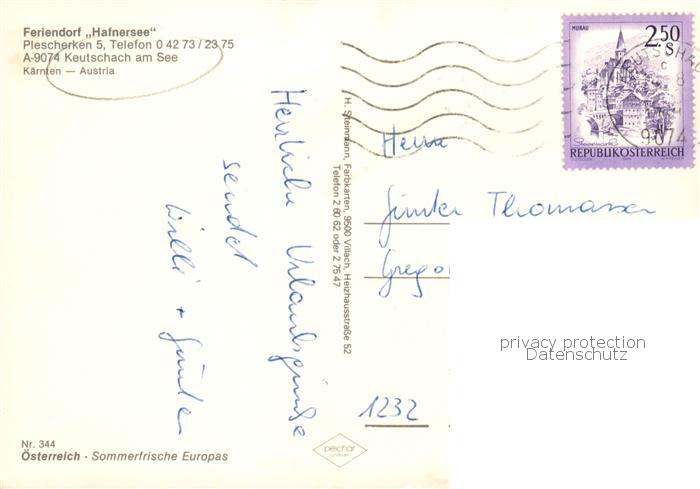 Feriendorf „Hafnersee“
Plescherken 5, Telefon 0 42 73 / 23 75
A-9074 Keutschach am See
Kärnten — Austria
Herzliche Urlaubsgrüße
sendet
Willi + Günter
H. Steinmann, Farbkarten, 9500 Villach, Heizhausstraße 52
Telefon 2 80 62 oder 2 75 47
MURAU
2.50
S
REPUBLIK ÖSTERREICH
9074
Herrn
Günter Thomassen
Grego
1232
privacy protection
Datenschutz
Nr. 344
Österreich - Sommerfrische Europas